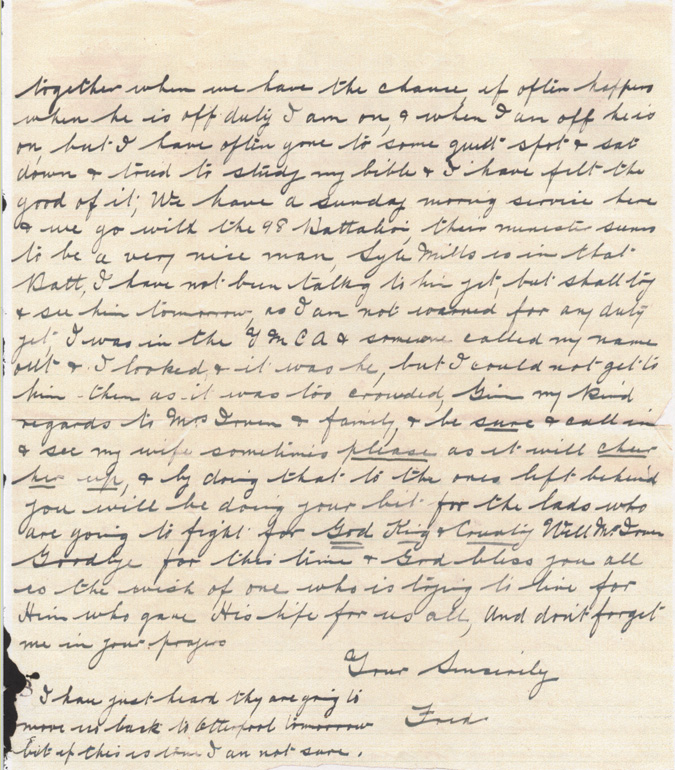 together when we have the chance, it often happens
when he is off duty I am on, & when I am off he is
on, but I have often gone to some quiet spot & sat
down & tried to study my bible & I have felt the
good of it, We have a Sunday morning service here
& we go with the 98 Battalion, their minister seems
to be a very nice man, Syle Mills is in that
Batt, I have not been talking to him yet, but shall try
& see him tomorrow, as I am not warned for any duty
yet, I was in the YMCA & someone called my name
out & I looked & it was he, but I could not get to
him then as it was too crowded, Give my kind
regards to Mrs & family, & be sure & call in
& see my wife sometimes please as it will cheer
her up, & by doing that to the ones left behind
you will be doing your bit for the lads who
are going to fight for God King & Country Well Mr
Goodbye for this time & God bless you all
is the wish of one who is trying to live for
Him who gave His life for us all, And don't forget
me in your prayers
Your Sincerily
Fred
I have just heard they are going to
move us back to Otterpool tomorrow
but if this is true I am not sure.